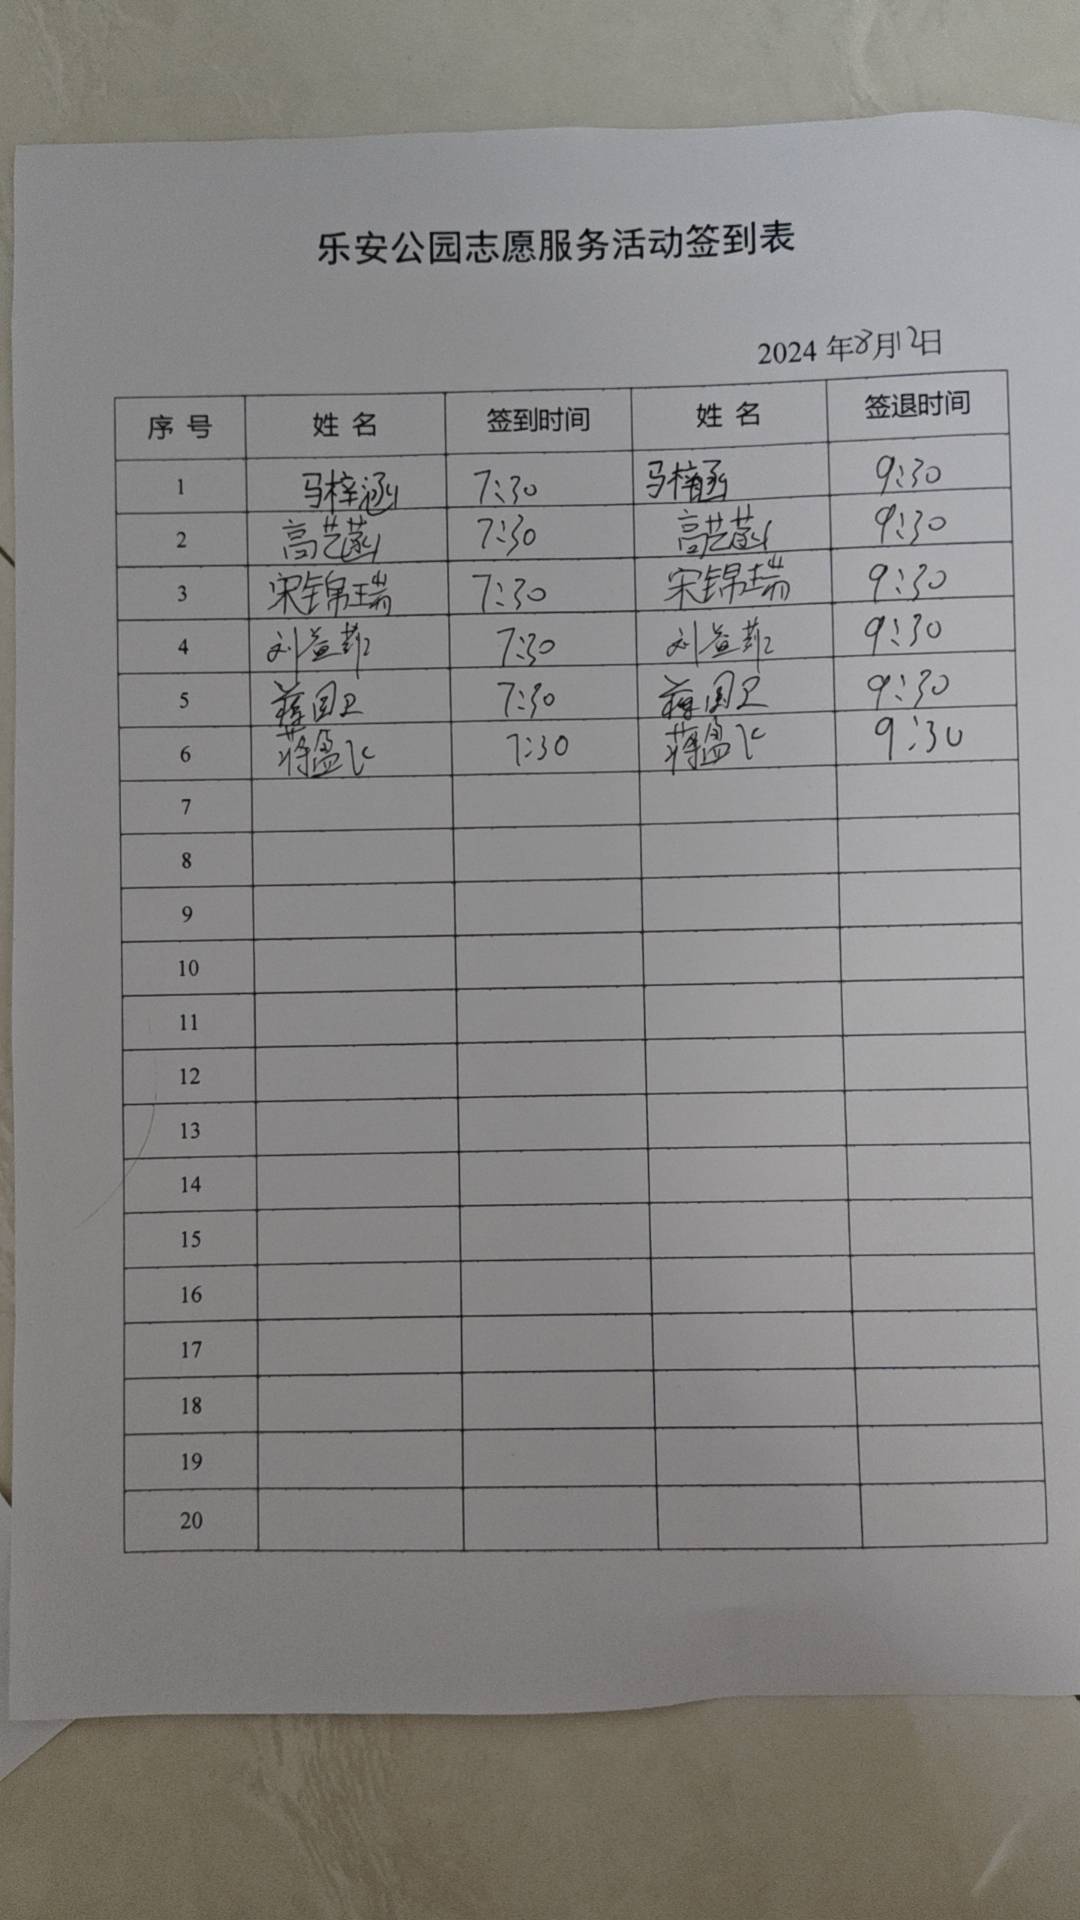 乐安公园志愿服务活动签到表
2024 年8月12日
序 号 姓 名 签到时间 姓 名 签退时间
1 马梓涵 7:30 马梓涵 9:30
2 高艺菡 7:30 高艺菡 9:30
3 宋锦瑞 7:30 宋锦瑞 9:30
4 刘益菲 7:30 刘益菲 9:30
5 蒋国卫 7:30 蒋国卫 9:30
6 蒋盈飞 7:30 蒋盈飞 9:30
7
8
9
10
11
12
13
14
15
16
17
18
19
20